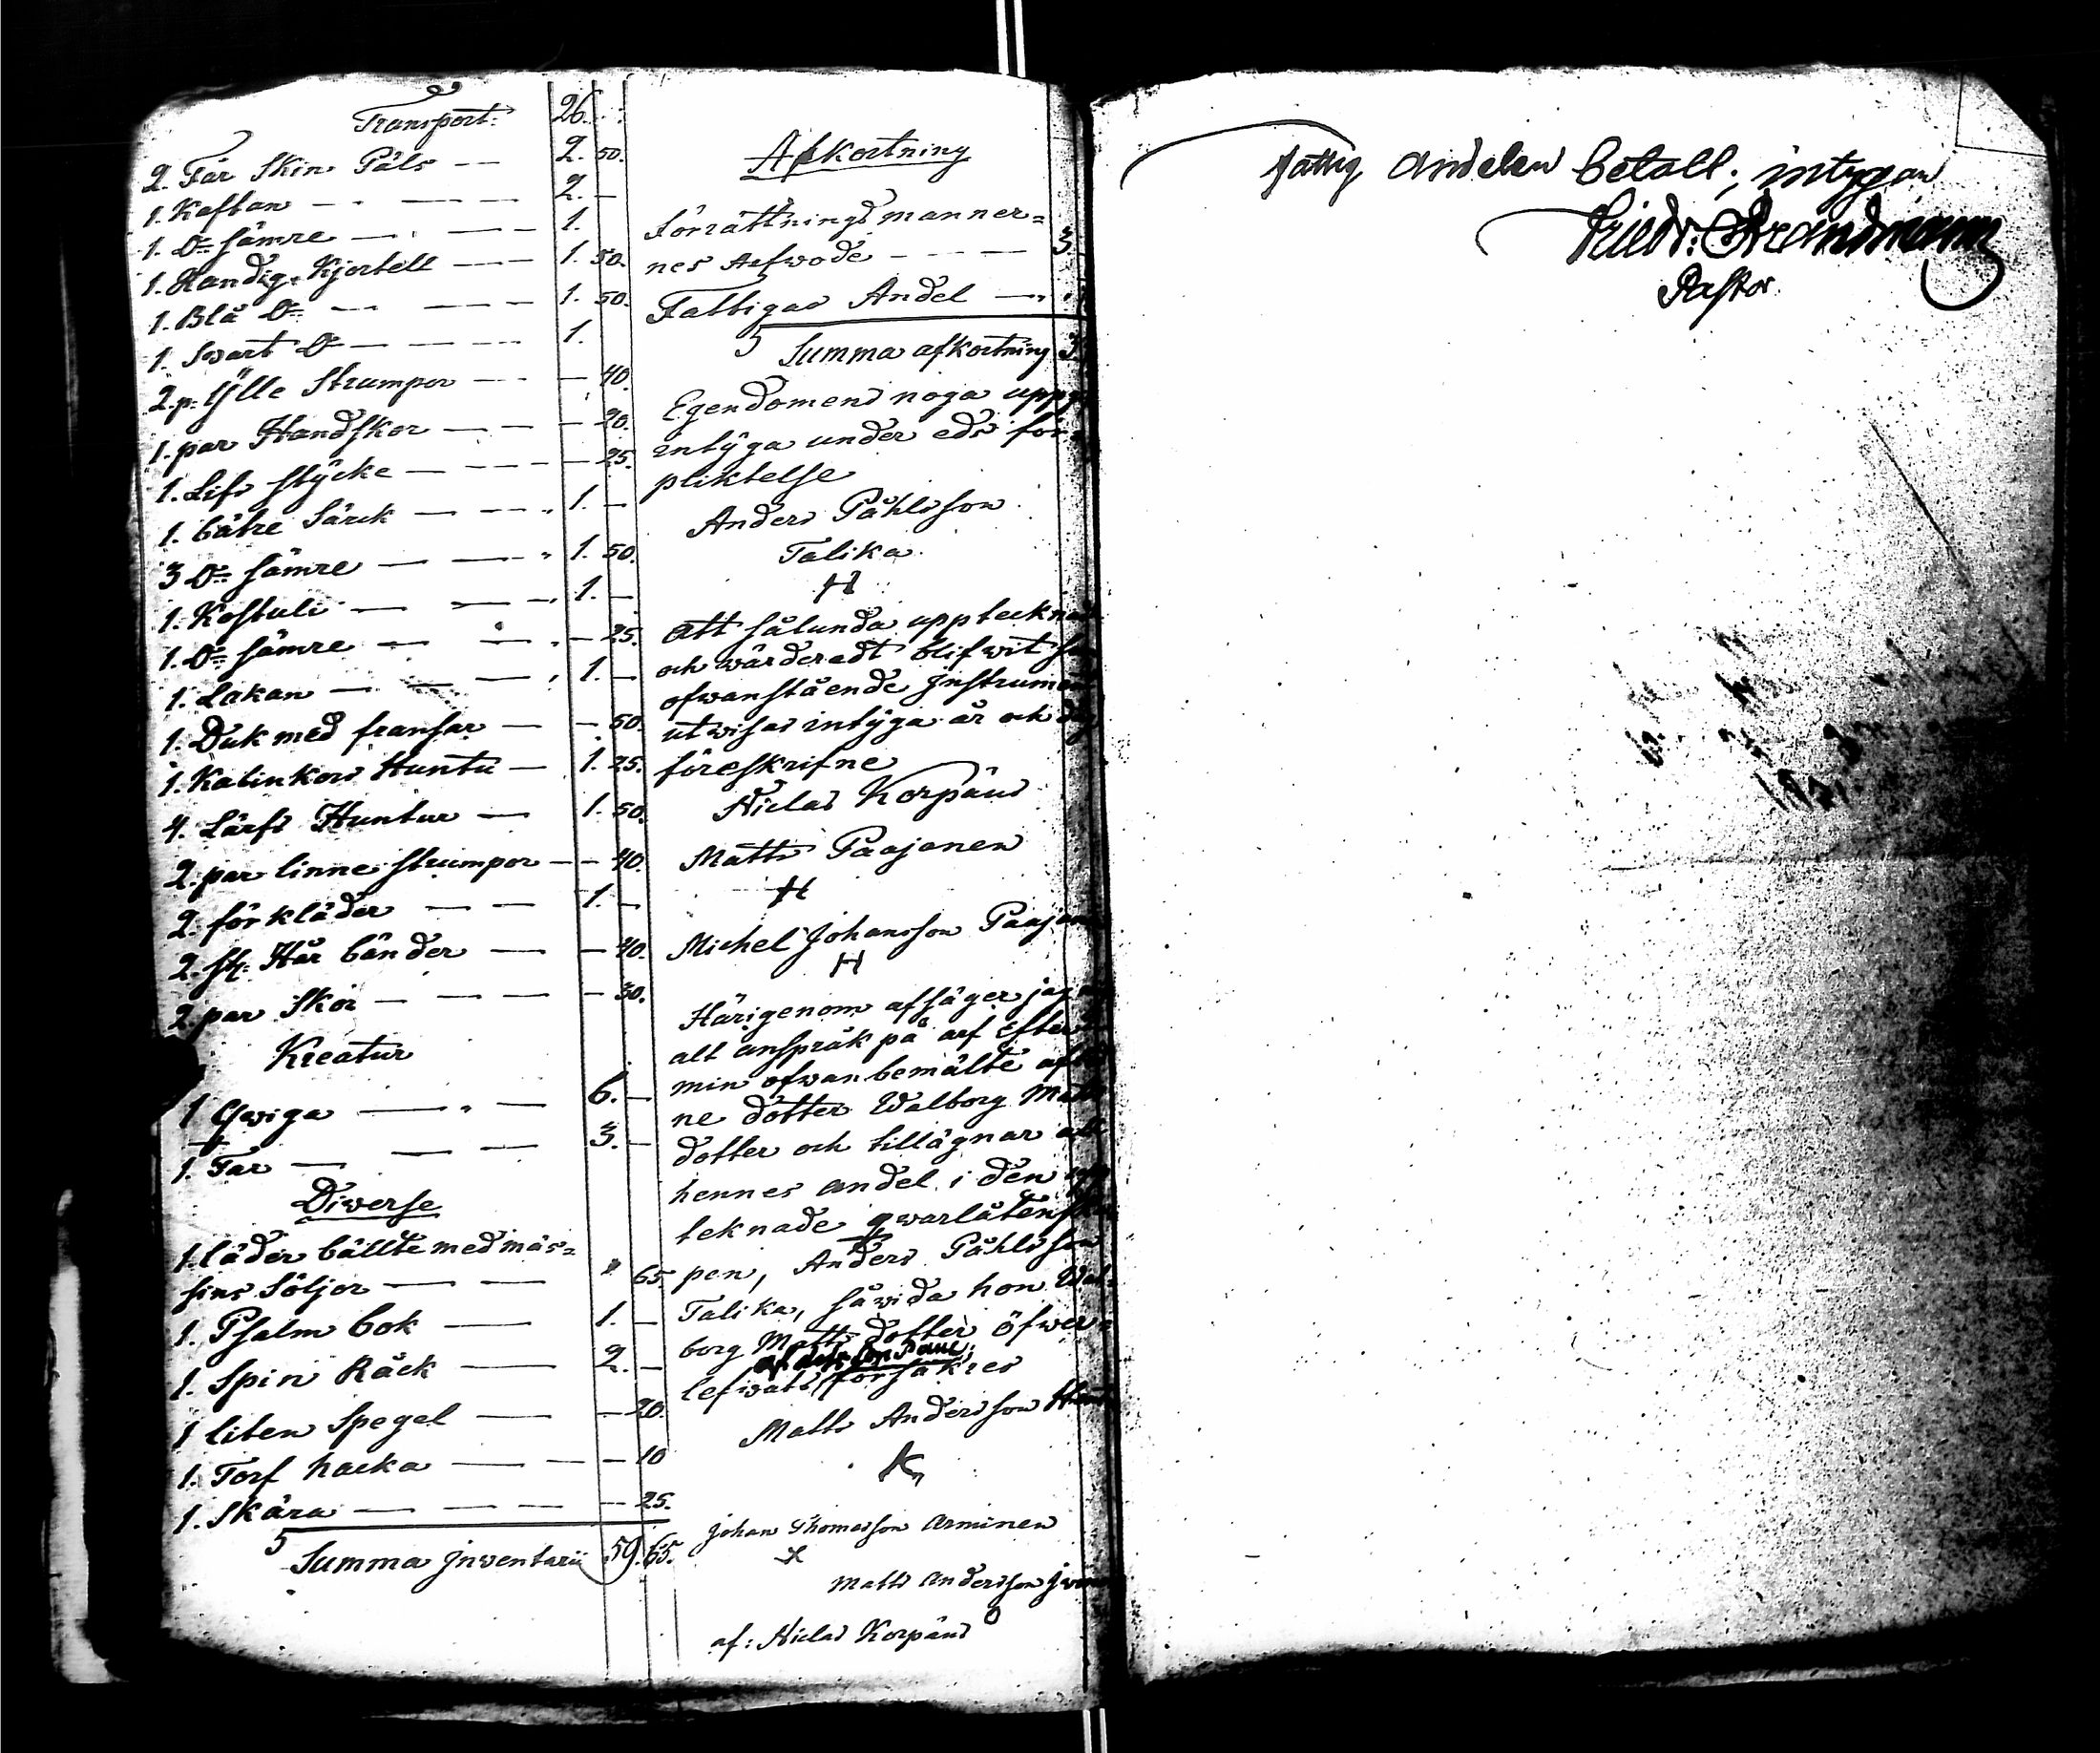 Transport. 26.
2. Får Skin Päls — 2. 50.
1. Kaftan — 2. —
1. D:o sämre — 1.
1. Randig Kjortell — 1. 50.
1. Blå D:o — 1. 50.
1. Svart D:o — 1.
2. p: Ylle Strumpor — 40.
1. par Handskor — 20.
1. Lifs stycke — 25.
1. bätre Särck — 1. —
3 D:o sämre — 1. 50.
1. Kostuli — 1. —
1. D:o sämre — 25.
1. Lakan — 1. —
1. Duk med fransar — 50.
1. Kalinkors Huntu — 1. 25.
4. Lärfs Huntur — 1. 50.
2. par linne strumpor — 40.
2. förkläder — 1. —
2. st: Hår bänder — 40.
2. par Skor — 30.
Kreatur
1 Qwiga — 6. —
1. Får — 3. —
Diverse
1. läder bällte med mäs=
sins Söljor — " 65.
1. Psalm bok — 1. —
1. Spin Råck — 2. —
1 liten Spegel — 20.
1. Torf hacka — 10
1. Skära — 25.
Summa Inventarii 59. 65.
Afkortning
Förrättnings manner=
nes Arfwode — 3.
Fattigas Andel —
Summa afkortning 3.
Egendomens noga
intyga under eds
pliktelse
Anders Påhlsson
Talika
H
Att sålunda
och wärderadt blifwit
ofwanstående
utwisar intyga år och
föreskrifne
Niclas Korpäus
Matts Paajanen
H
Michel Johansson
H
Härigenom afsäger jag
alt anspråk på arf efter
min ofwanbemälte
ne dotter Walborg
dotter och tillägnar
hennes andel i den
teknade qwarlåtens
pen, Anders Påhlsson
Talika, såwida hon Wal=
borg Matts dotter öfwer=
af dess Son Paul,
lefwatt försäkres
Matts Andersson
Johan Thomasson Arminen
Matts Andersson
af: Niclas Korpäus
fattig Andelen betalt; intygar
Friedr: Strandmann
Pastor.